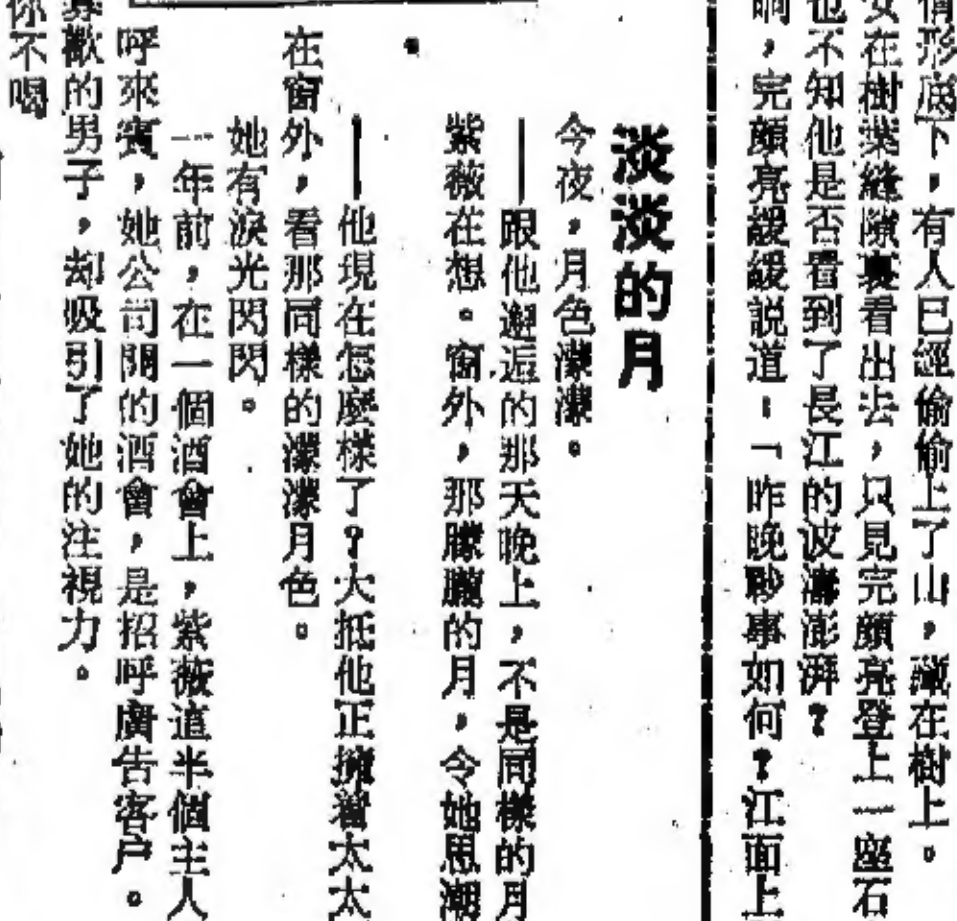 情形底下，有人已經偷偷上了山，藏在樹上。
女在樹葉縫隙裏看出去，只見完顏亮登上一座石
也不知他是否看到了長江的波濤澎湃？
晌，完顏亮緩緩説道：「昨晚事如何？江面上
淡淡的月
今夜，月色濛濛。
——跟他邂逅的那天晚上，不是同樣的月
紫薇在想。窗外，那朦朧的月，令她思潮
——他現在怎麼樣了？大抵他正擁着太太
在窗外，看那同樣的濛濛月色。
她有淚光閃閃。
一年前，在一個酒會上，紫薇這半個主人
呼來賓，她公司開的酒會，是招呼廣告客户。
寡歡的男子，却吸引了她的注視力。
你不喝